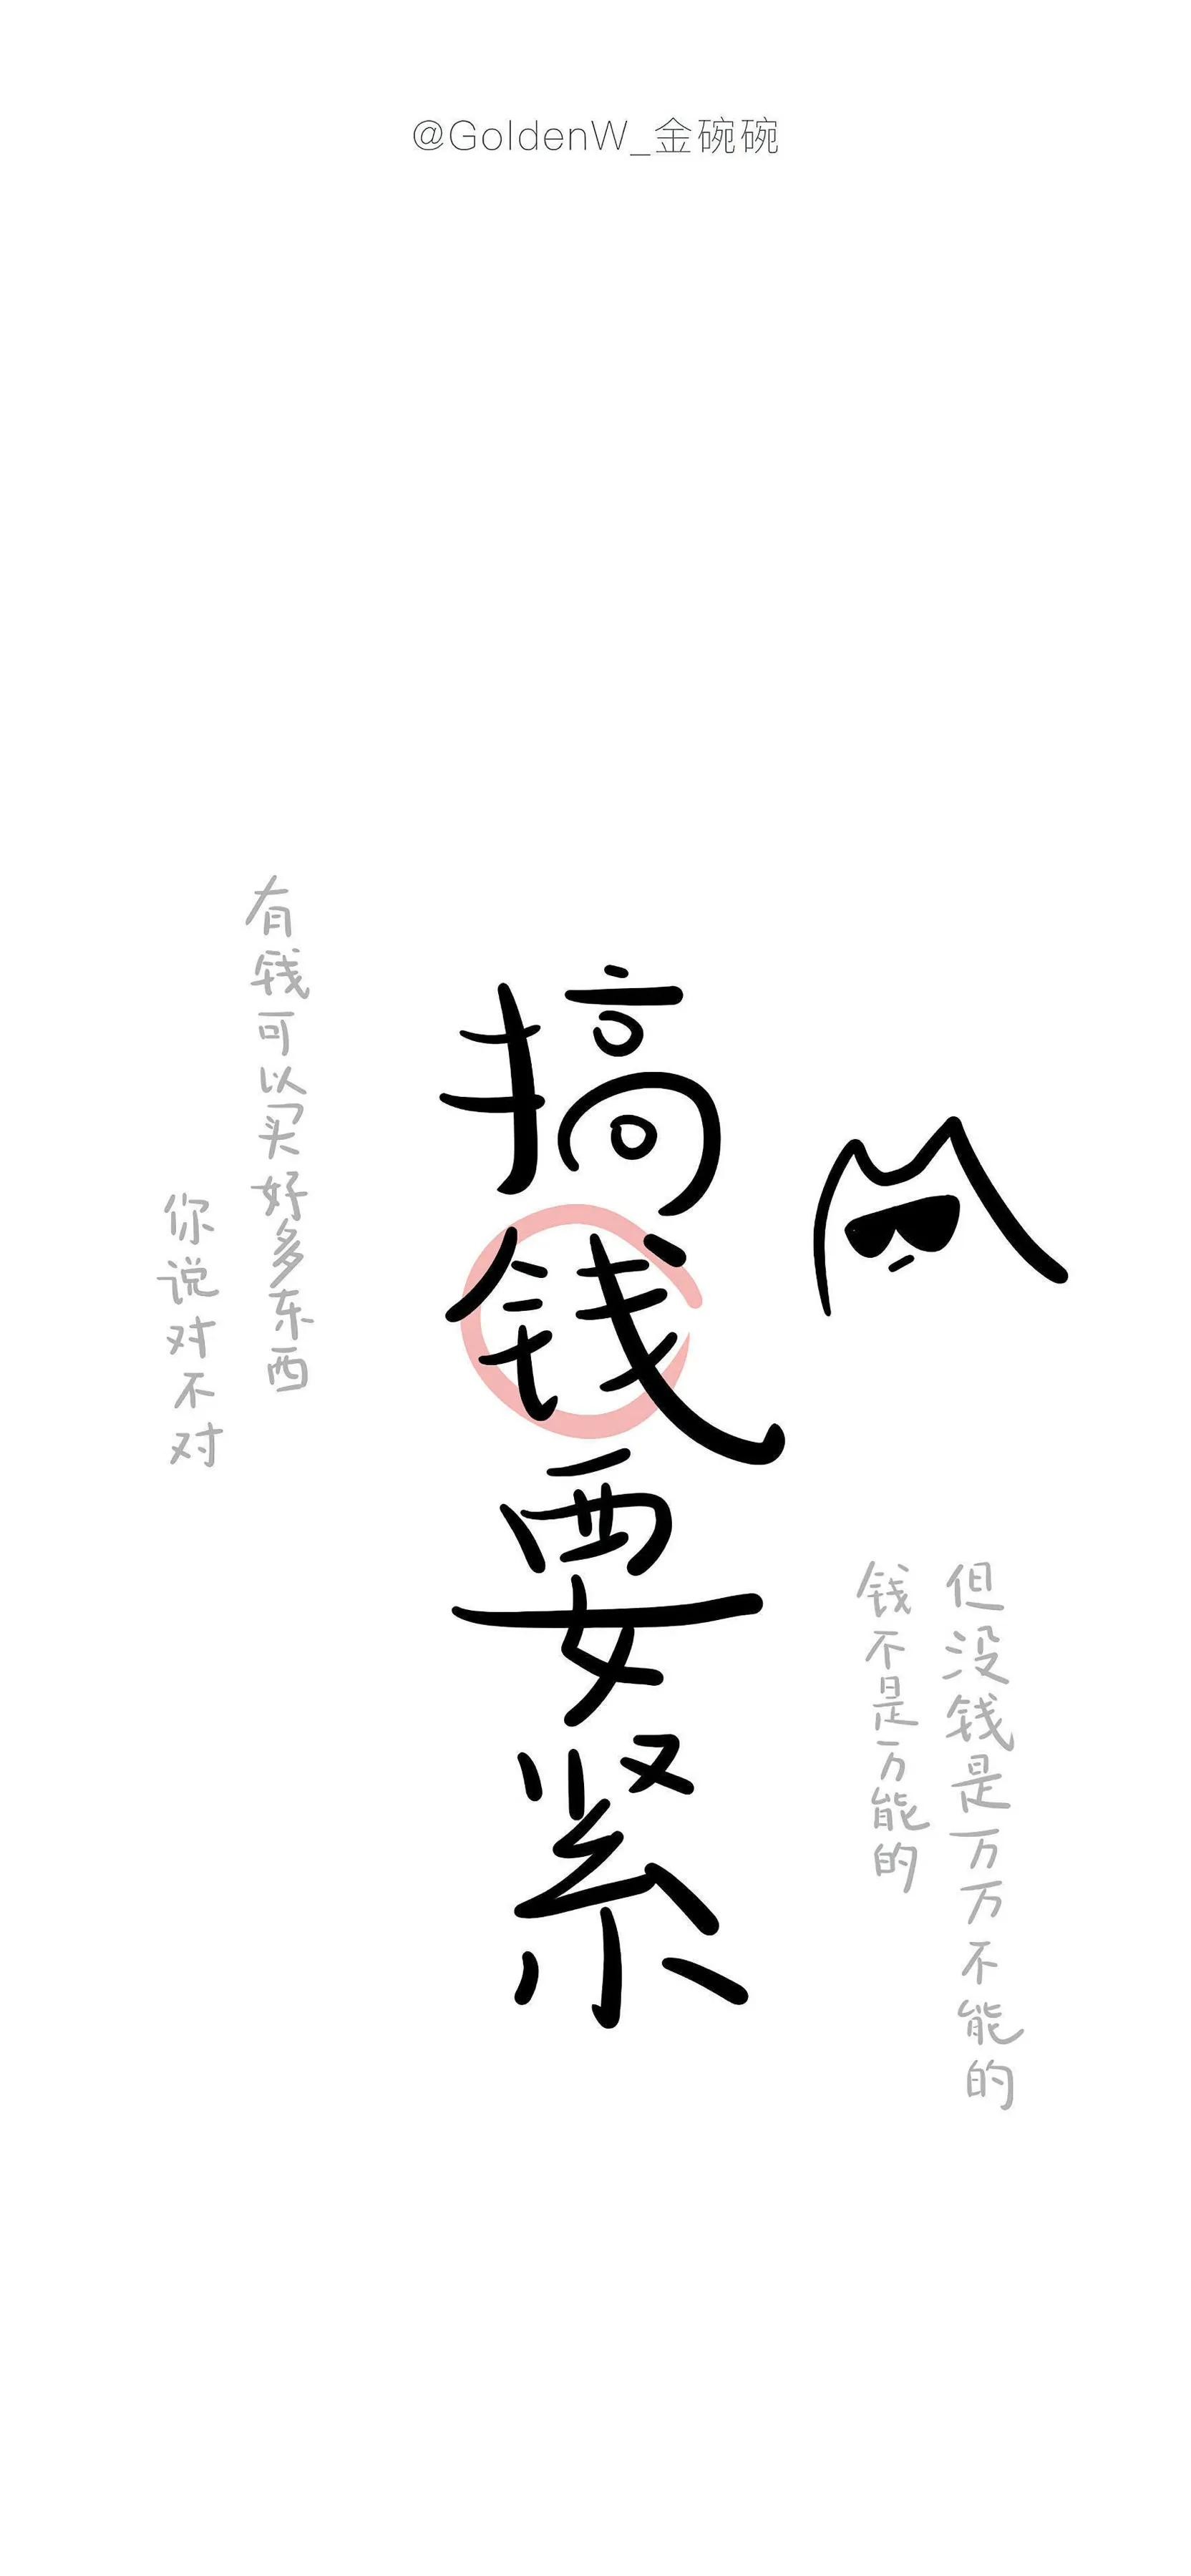 @GoldenW_金碗碗
搞钱要紧
有钱可以买好多东西
你说对不对
钱不是万能的
但没钱是万万不能的